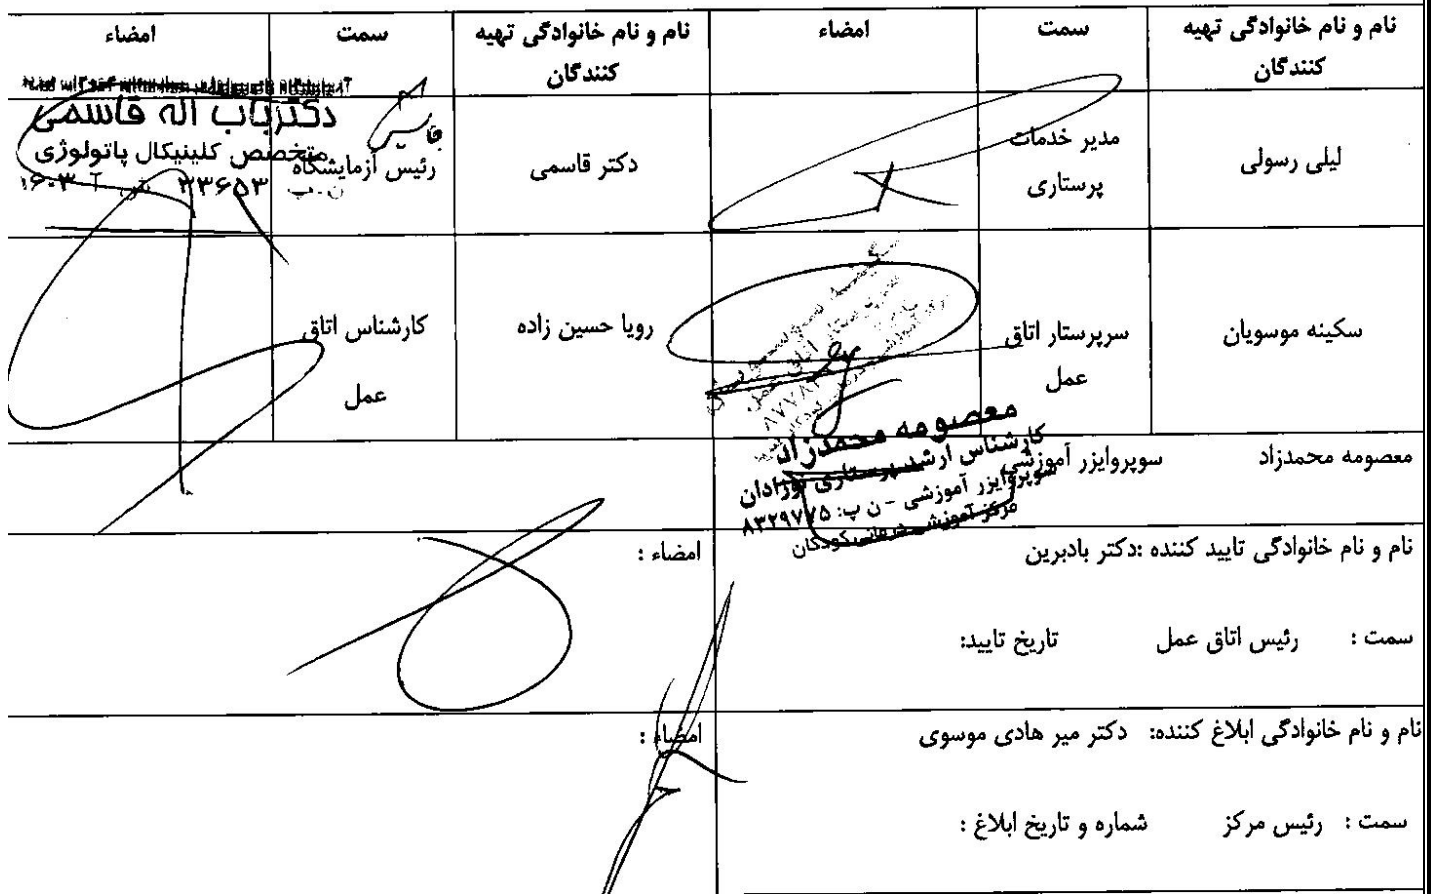 نام و نام خانوادگی تهیه کنندگان سمت امضاء نام و نام خانوادگی تهیه کنندگان سمت امضاء
لیلی رسولی
مدیر خدمات
پرستاری
دکتر قاسمی
رئیس آزمایشگاه
دکتر باب اله قاسمی
متخصص کلینیکال پاتولوژی
۳۳۶۵۳
سکینه موسویان
سرپرستار اتاق
عمل
رویا حسین زاده
کارشناس اتاق
عمل
معصومه محمدزاد سوپروایزر آموزشی
معصومه محمدزاد
کارشناس ارشد پرستاری نوزادان
سوپروایزر آموزشی - ن پ: ۸۳۲۹۷۷۵
مرکز آموزشی درمانی کودکان
نام و نام خانوادگی تایید کننده :دکتر بادبرین
امضاء :
سمت : رئیس اتاق عمل تاریخ تایید:
نام و نام خانوادگی ابلاغ کننده: دکتر میر هادی موسوی
امضاء :
سمت : رئیس مرکز شماره و تاریخ ابلاغ :